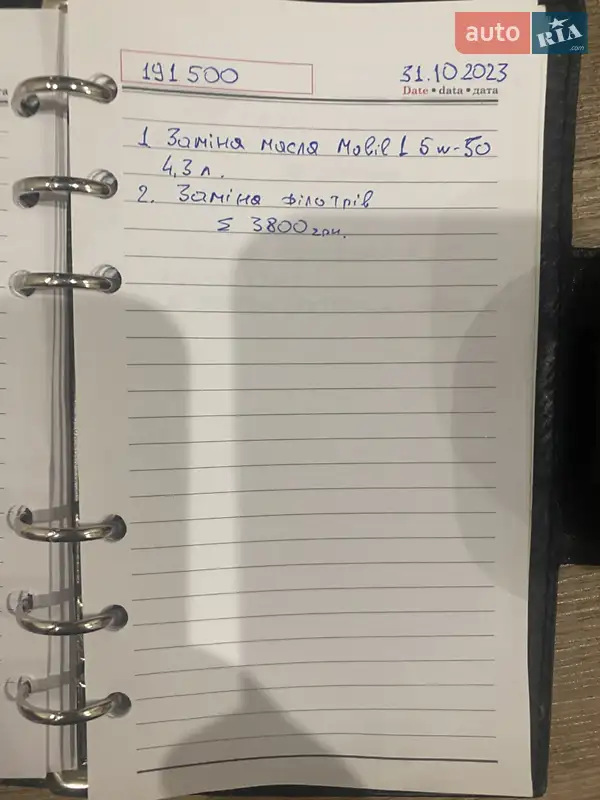 auto RIA .com
191 500
31.10 2023
Date • data • дата
1 Заміна масла Mobil 1 5w-50
4,3 л.
2. Заміна фільтрів
Σ 3800 грн.